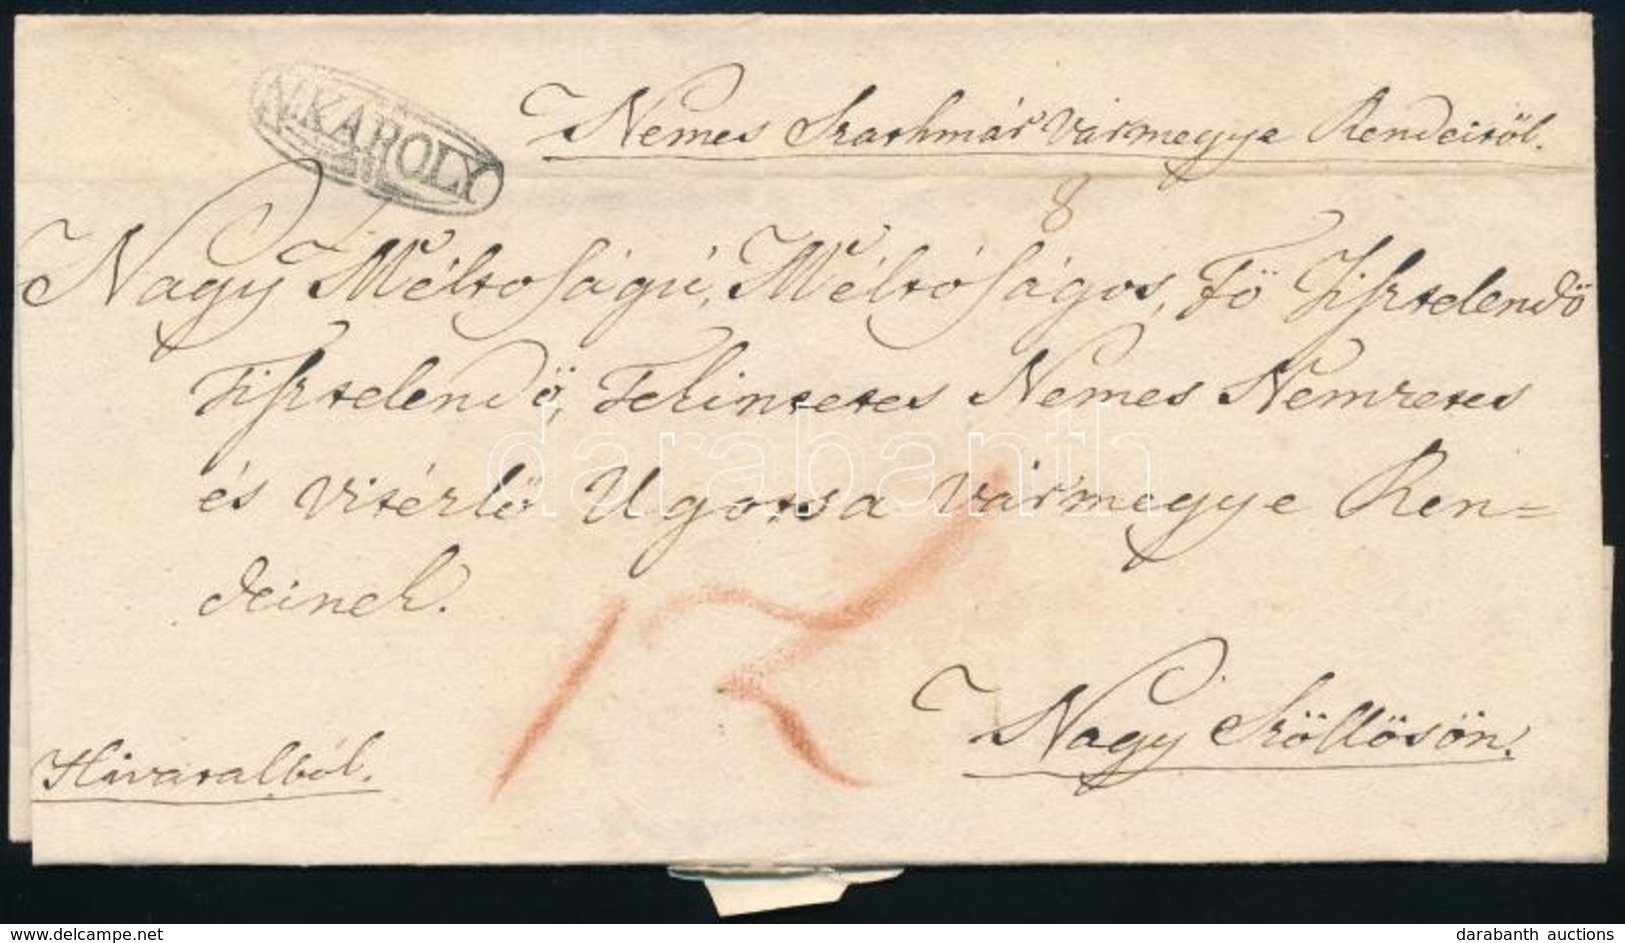 N.KÁROLY
Nemes Szathmár Vármegye Rendeitöl.
8
Nagy Méltoságú, Méltóságos, Fö Tisztelendö
Tisztelendö, Tekintetes Nemes Nemzetes
és Vitézlö Ugotsa Vármegye Ren=
deinek.
12
Nagy Szöllösön.
Hivatalból.
darabanth
www.delcampe.net
darabanth auctions